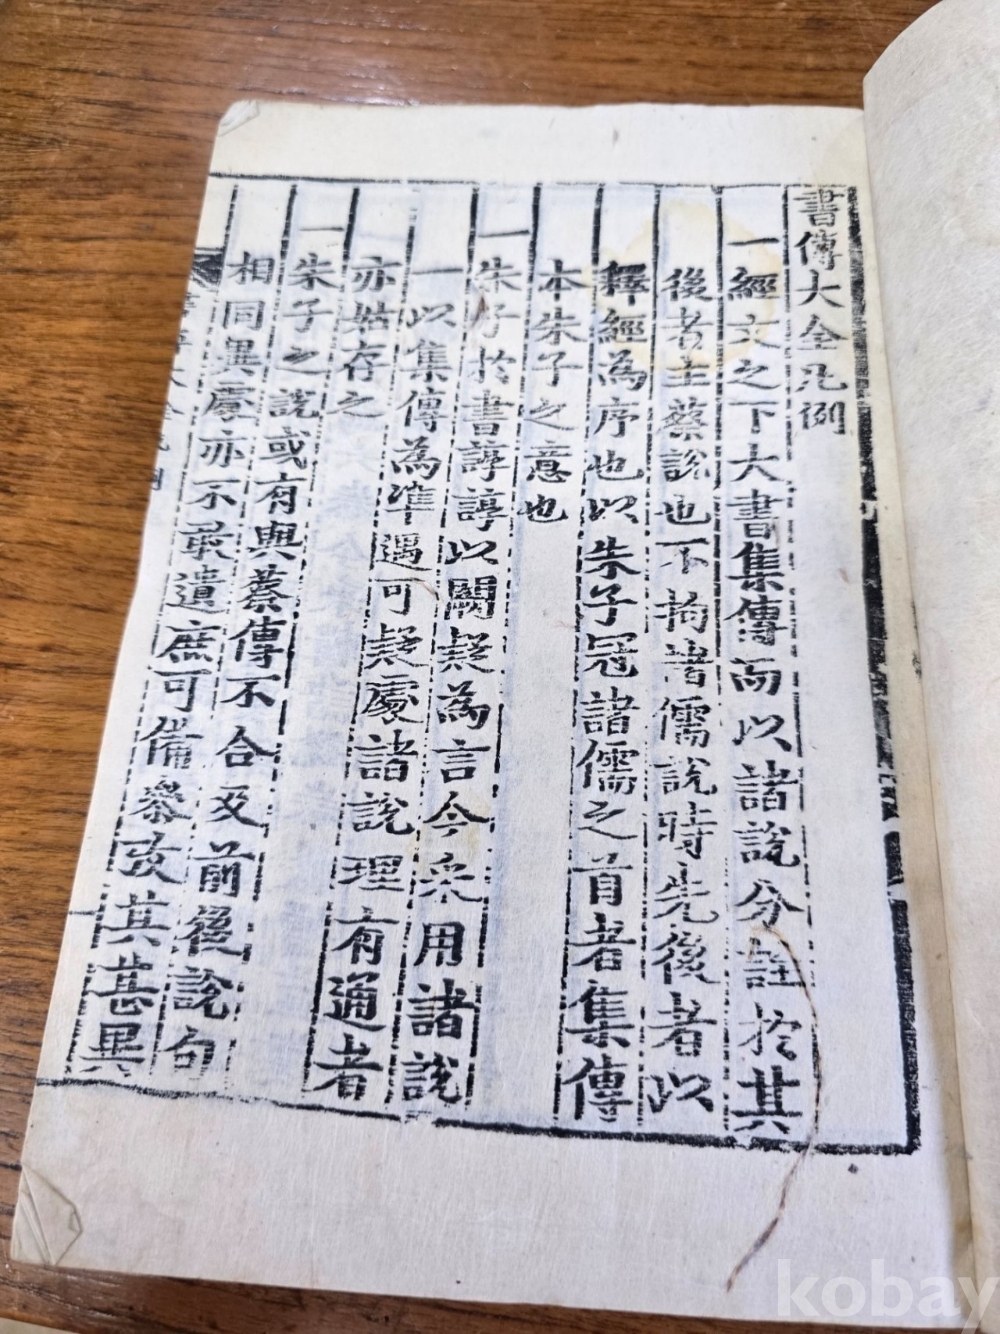 書傳大全凡例
一經文之下大書集傳而以諸說分註於其
後者主蔡說也不拘諸儒說時先後者以
釋經為序也以朱子冠諸儒之首者集傳
本朱子之意也
一朱子於書諄諄以闕疑為言今采用諸說
一以集傳為準遇可疑處諸說理有通者
亦姑存之
一朱子之說或有與蔡傳不合及前後說句
相同異處亦不敢遺庶可備參攷其甚異
kobay